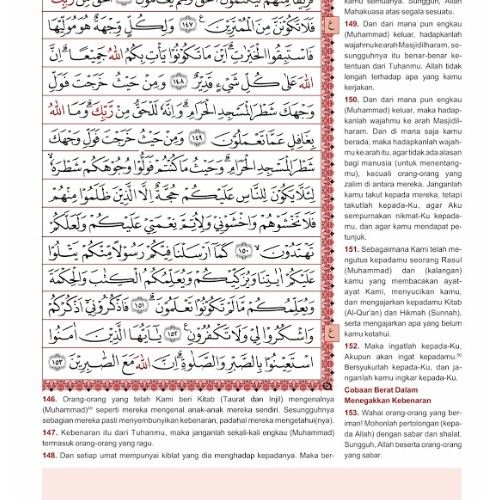 فَلَا تَكُونَنَّ مِنَ الْمُمْتَرِيْنَ ۝١٤٧ وَلِكُلٍّ وِّجْهَةٌ هُوَ مُوَلِّيْهَا
فَاسْتَبِقُوا الْخَيْرٰتِۗ اَيْنَ مَا تَكُوْنُوْا يَأْتِ بِكُمُ اللّٰهُ جَمِيْعًاۗ اِنَّ
اللّٰهَ عَلٰى كُلِّ شَيْءٍ قَدِيْرٌ ۝١٤٨ وَمِنْ حَيْثُ خَرَجْتَ فَوَلِّ
وَجْهَكَ شَطْرَ الْمَسْجِدِ الْحَرَامِۗ وَاِنَّهٗ لَلْحَقُّ مِنْ رَّبِّكَۗ وَمَا اللّٰهُ
بِغَافِلٍ عَمَّا تَعْمَلُوْنَ ۝١٤٩ وَمِنْ حَيْثُ خَرَجْتَ فَوَلِّ وَجْهَكَ
شَطْرَ الْمَسْجِدِ الْحَرَامِۗ وَحَيْثُ مَا كُنْتُمْ فَوَلُّوْا وُجُوْهَكُمْ شَطْرَهٗۙ
لِئَلَّا يَكُوْنَ لِلنَّاسِ عَلَيْكُمْ حُجَّةٌ اِلَّا الَّذِيْنَ ظَلَمُوْا مِنْهُمْ
فَلَا تَخْشَوْهُمْ وَاخْشَوْنِيْ وَلِاُتِمَّ نِعْمَتِيْ عَلَيْكُمْ وَلَعَلَّكُمْ
تَهْتَدُوْنَ ۝١٥٠ كَمَآ اَرْسَلْنَا فِيْكُمْ رَسُوْلًا مِّنْكُمْ يَتْلُوْا
عَلَيْكُمْ اٰيٰتِنَا وَيُزَكِّيْكُمْ وَيُعَلِّمُكُمُ الْكِتٰبَ وَالْحِكْمَةَ
وَيُعَلِّمُكُمْ مَّا لَمْ تَكُوْنُوْا تَعْلَمُوْنَ ۝١٥١ فَاذْكُرُوْنِيْٓ اَذْكُرْكُمْ
وَاشْكُرُوْا لِيْ وَلَا تَكْفُرُوْنِ ۝١٥٢ يٰٓاَيُّهَا الَّذِيْنَ اٰمَنُوا
اسْتَعِيْنُوْا بِالصَّبْرِ وَالصَّلٰوةِۗ اِنَّ اللّٰهَ مَعَ الصّٰبِرِيْنَ ۝١٥٣
146. Orang-orang yang telah Kami beri Kitab (Taurat dan Injil) mengenalnya
(Muhammad) seperti mereka mengenal anak-anak mereka sendiri. Sesungguhnya
sebagian mereka pasti menyembunyikan kebenaran, padahal mereka mengetahui(nya).
147. Kebenaran itu dari Tuhanmu, maka janganlah sekali-kali engkau (Muhammad)
termasuk orang-orang yang ragu.
148. Dan setiap umat mempunyai kiblat yang dia menghadap kepadanya. Maka ber-
kamu semuanya. Sungguh, Allah
Mahakuasa atas segala sesuatu.
149. Dan dari mana pun engkau
(Muhammad) keluar, hadapkanlah
wajahmu ke arah Masjidilharam, se-
sungguhnya itu benar-benar ke-
tentuan dari Tuhanmu. Allah tidak
lengah terhadap apa yang kamu
kerjakan.
150. Dan dari mana pun engkau
(Muhammad) keluar, maka hadap-
kanlah wajahmu ke arah Masjidil-
haram. Dan di mana saja kamu
berada, maka hadapkanlah wajah-
mu ke arah itu, agar tidak ada alasan
bagi manusia (untuk menentang-
mu), kecuali orang-orang yang
zalim di antara mereka. Janganlah
kamu takut kepada mereka, tetapi
takutlah kepada-Ku, agar Aku
sempurnakan nikmat-Ku kepada-
mu, dan agar kamu mendapat pe-
tunjuk.
151. Sebagaimana Kami telah me-
ngutus kepadamu seorang Rasul
(Muhammad) dari (kalangan)
kamu yang membacakan ayat-
ayat Kami, menyucikan kamu,
dan mengajarkan kepadamu Kitab
(Al-Qur'an) dan Hikmah (Sunnah),
serta mengajarkan apa yang belum
kamu ketahui.
152. Maka ingatlah kepada-Ku,
Akupun akan ingat kepadamu.50
Bersyukurlah kepada-Ku, dan ja-
nganlah kamu ingkar kepada-Ku.
Cobaan Berat Dalam
Menegakkan Kebenaran
153. Wahai orang-orang yang ber-
iman! Mohonlah pertolongan (kepa-
da Allah) dengan sabar dan shalat.
Sungguh, Allah beserta orang-orang
yang sabar.